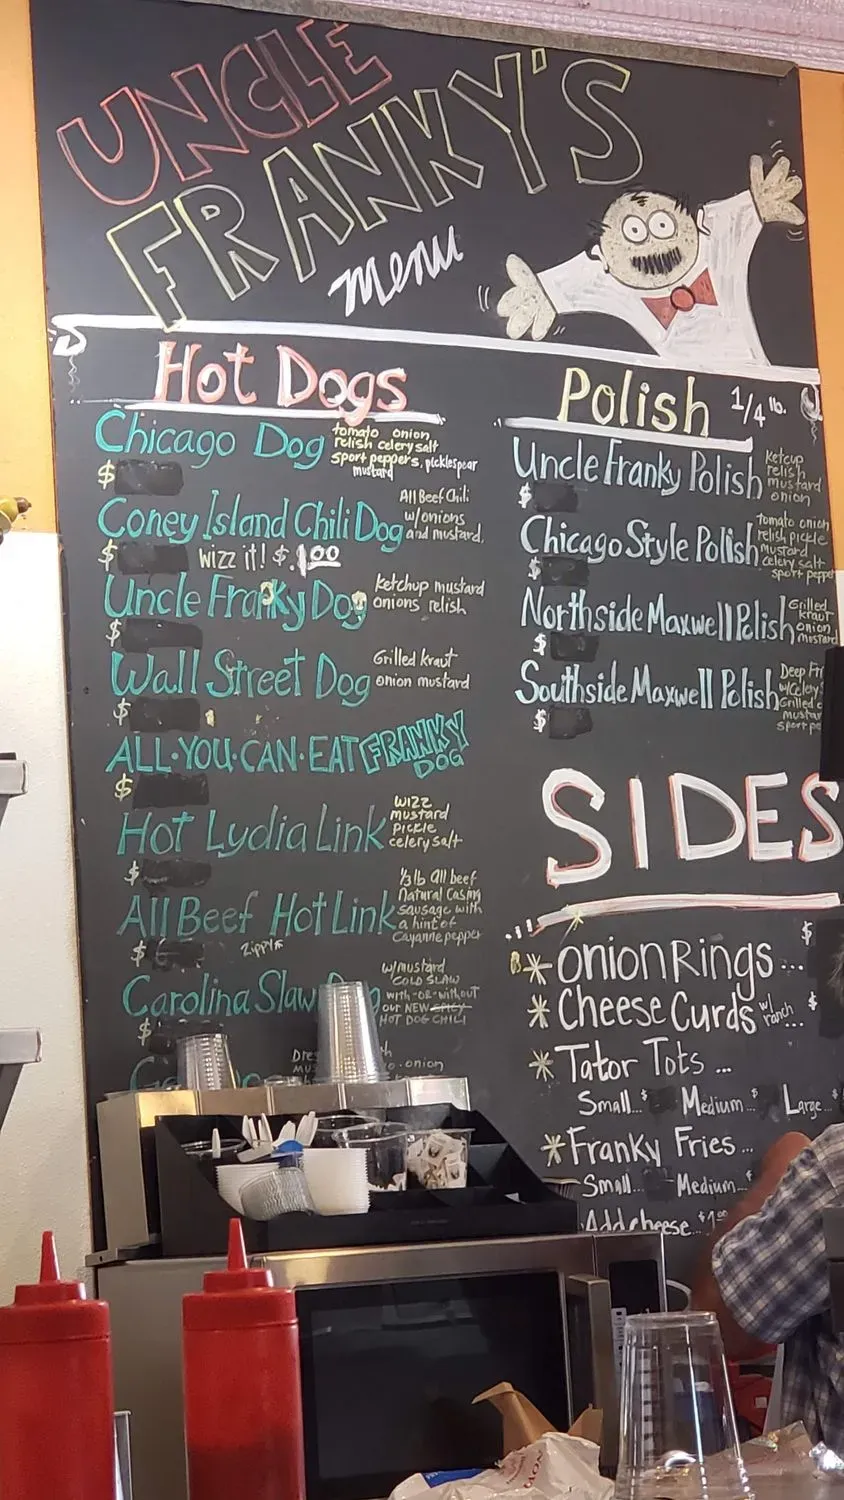 UNCLE
FRANKY'S
menu
Hot Dogs
Chicago Dog
tomato onion
relish celery salt
sport peppers, picklespear
mustard
$
Coney Island Chili Dog
All Beef Chili
w/onions
and mustard.
$
wizz it! $.1.00
Uncle Franky Dog
Ketchup mustard
onions relish
$
Wall Street Dog
Grilled kraut
onion mustard
$
ALL·YOU·CAN·EAT FRANKY
DOG
$
Hot Lydia Link
wizz
mustard
pickle
celery salt
$
All Beef Hot Link
1/3 lb all beef
Natural Casing
sausage with
a hint of
Cayanne pepper
$
Zippy
Carolina Slaw
w/mustard
COLD SLAW
with -OR- without
our NEW SPICY
HOT DOG CHILI
$
onion
Polish 1/4 lb.
Uncle Franky Polish
Ketcup
relish
mustard
onion
$
Chicago Style Polish
tomato onion
relish pickle
mustard
celery salt
sport peppe
$
Northside Maxwell Polish
Grilled
kraut
onion
mustard
$
Southside Maxwell Polish
Deep Fri
w/Celery
Grilled
mustar
sport pe
$
SIDES
$
* onion Rings ...
* Cheese Curds w/ ranch ... $
* Tator Tots ...
Small...$ Medium...$ Large...$
* Franky Fries ...
Small... Medium...$
Add cheese... $1.00